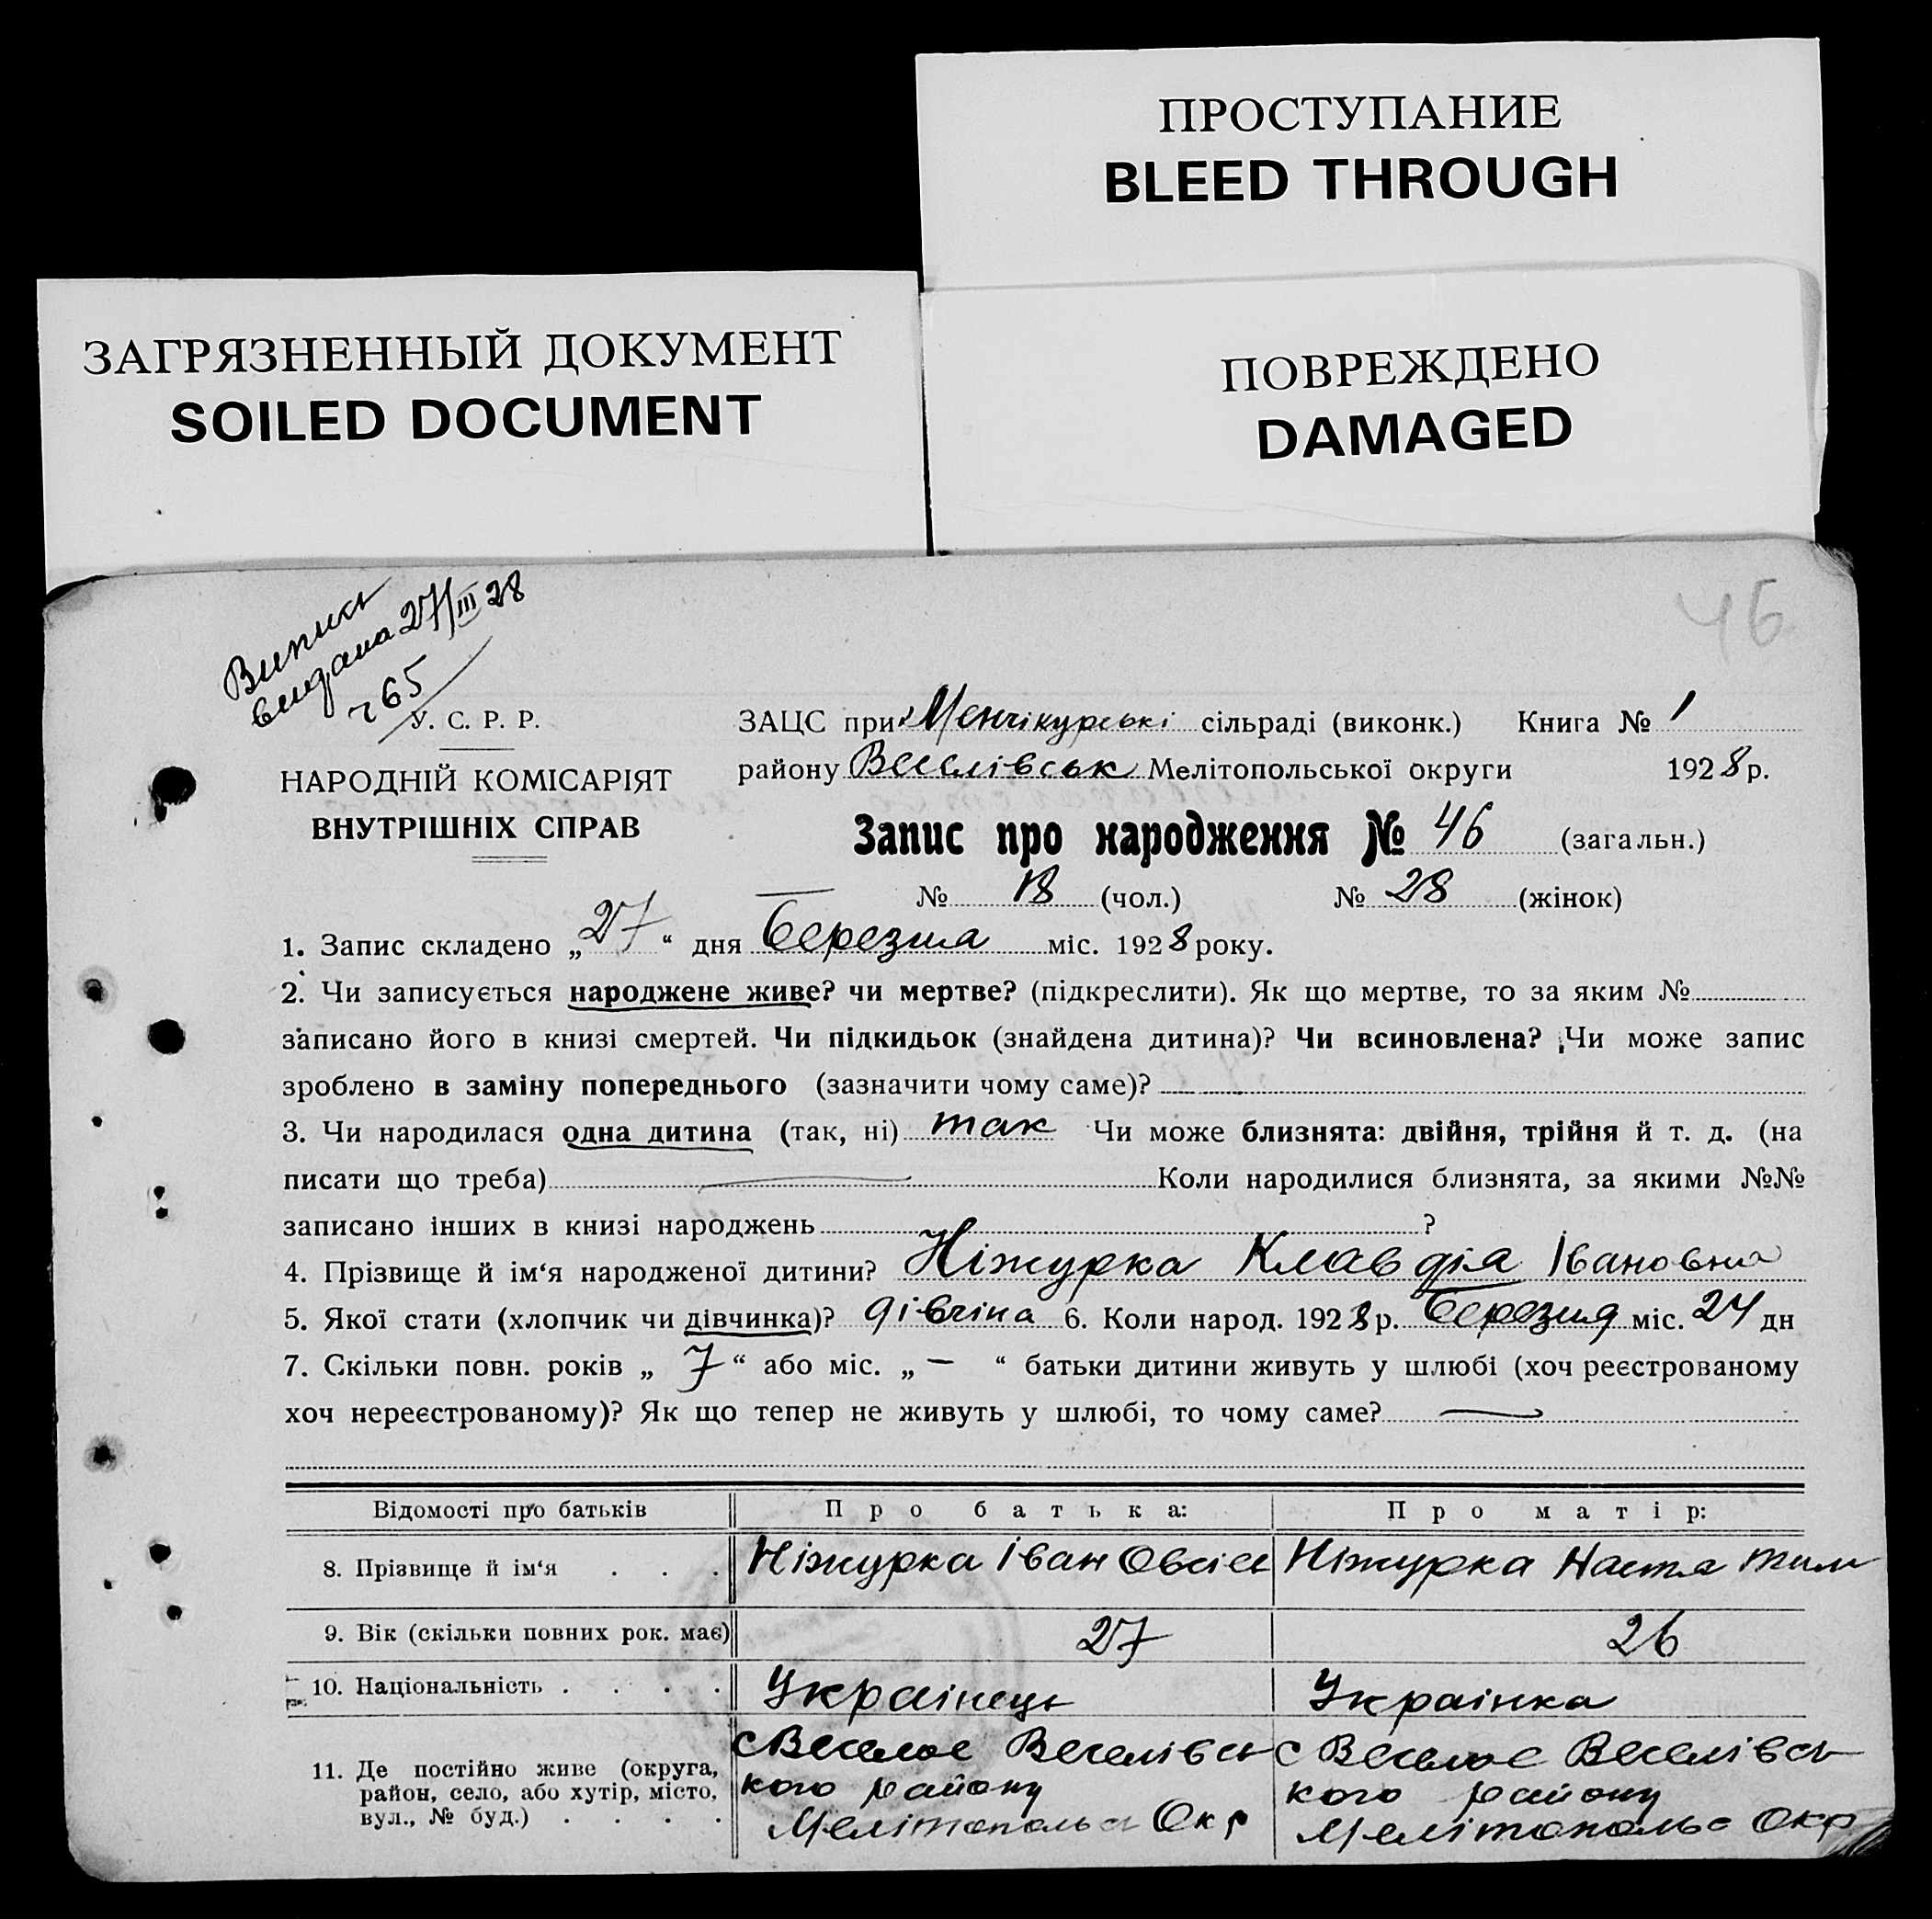 ПРОСТУПАНИЕ
BLEED THROUGH
ЗАГРЯЗНЕННЫЙ ДОКУМЕНТ
SOILED DOCUMENT
ПОВРЕЖДЕНО
DAMAGED
46
Випись
видана 27/III 28
265
У. С. Р. Р.
НАРОДНІЙ КОМІСАРІЯТ
ВНУТРІШНІХ СПРАВ
ЗАЦС при Менчікурські сільраді (виконк.) Книга № 1
району Веселівськ Мелітопольської округи 1928 р.
Запис про народження № 46 (загальн.)
№ 18 (чол.) № 28 (жінок)
1. Запис складено „27“ дня Березня міс. 1928 року.
2. Чи записується народжене живе? чи мертве? (підкреслити). Як що мертве, то за яким №
записано його в книзі смертей. Чи підкидьок (знайдена дитина)? Чи всиновлена? Чи може запис
зроблено в заміну попереднього (зазначити чому саме)?
3. Чи народилася одна дитина (так, ні) так Чи може близнята: двійня, трійня й т. д. (на
писати що треба) — Коли народилися близнята, за якими №№
записано інших в книзі народжень ?
4. Прізвище й ім‘я народженої дитини? Ніжурка Клавдіа Івановна
5. Якої стати (хлопчик чи дівчинка)? дівчіна 6. Коли народ. 1928 р. Березня міс. 24 дн
7. Скільки повн. років „ 7 “ або міс. „ — “ батьки дитини живуть у шлюбі (хоч реєстрованому
хоч нереєстрованому)? Як що тепер не живуть у шлюбі, то чому саме? —
Відомості про батьків Про батька: Про матір:
8. Прізвище й ім‘я . . . Ніжурка Іван Овсіє Ніжурка Настя Тим
9. Вік (скільки повних рок. має) 27 26
10. Національність . . . . Украінець Украінка
11. Де постійно живе (округа, с Веселое Веселівсь с Веселое Веселівсь
район, село, або хутір, місто, кого району кого району
вул., № буд.) . . . . Мелітопольс Окр Мелітопольс Окр